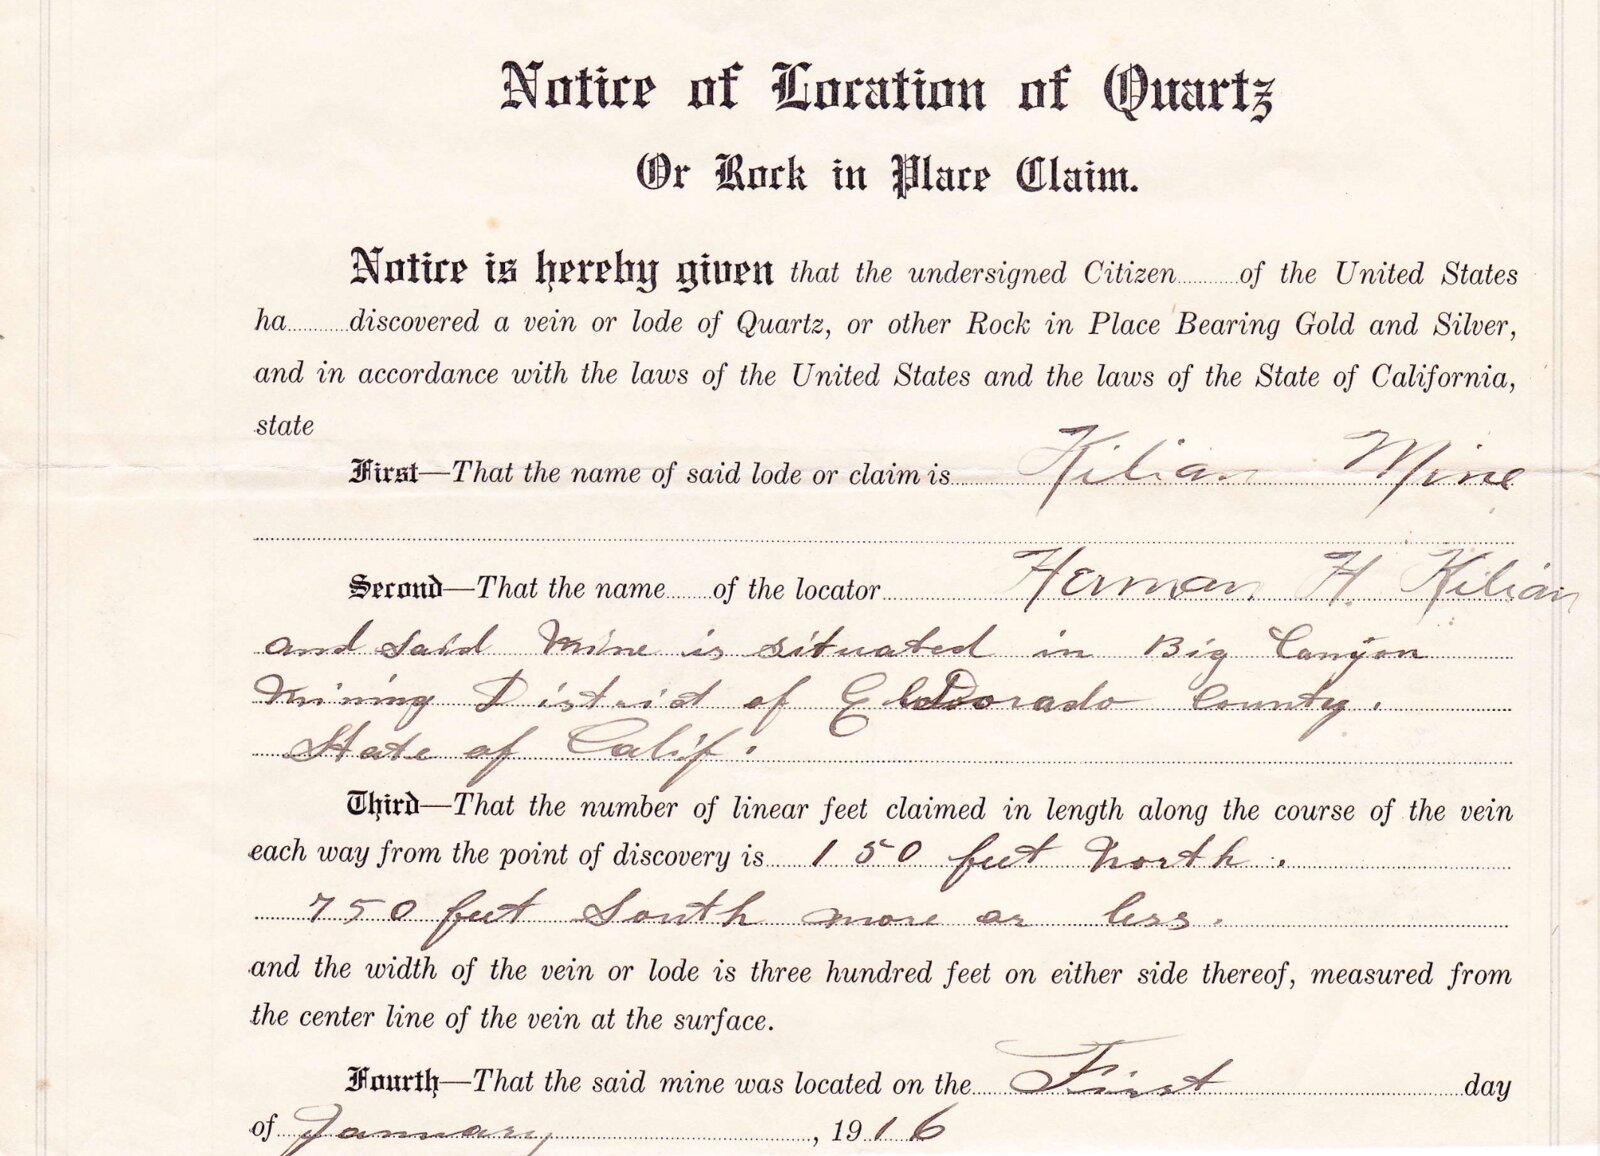 Notice of Location of Quartz
Or Rock in Place Claim.
Notice is hereby given that the undersigned Citizen........of the United States
ha........discovered a vein or lode of Quartz, or other Rock in Place Bearing Gold and Silver,
and in accordance with the laws of the United States and the laws of the State of California,
state
First—That the name of said lode or claim is Kilian Mine
Second—That the name......of the locator Herman H. Kilian
and said Mine is situated in Big Canyon
Mining District of El Dorado County.
State of Calif.
Third—That the number of linear feet claimed in length along the course of the vein
each way from the point of discovery is 150 feet North.
750 feet South more or less.
and the width of the vein or lode is three hundred feet on either side thereof, measured from
the center line of the vein at the surface.
Fourth—That the said mine was located on the First day
of January, 1916